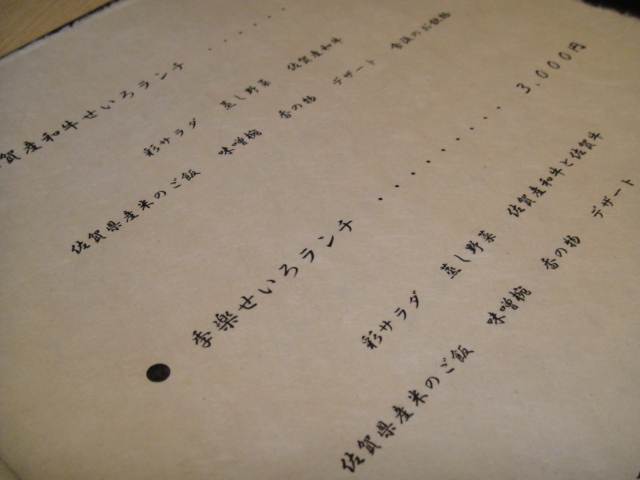 賀産和牛せいろランチ ・・・・・・
彩サラダ 蒸し野菜 佐賀産和牛
佐賀県産米のご飯 味噌椀 香の物 デザート 食後のお飲物
● 季楽せいろランチ ・・・・・・・・・ 3,000円
彩サラダ 蒸し野菜 佐賀産和牛と佐賀牛
佐賀県産米のご飯 味噌椀 香の物 デザート